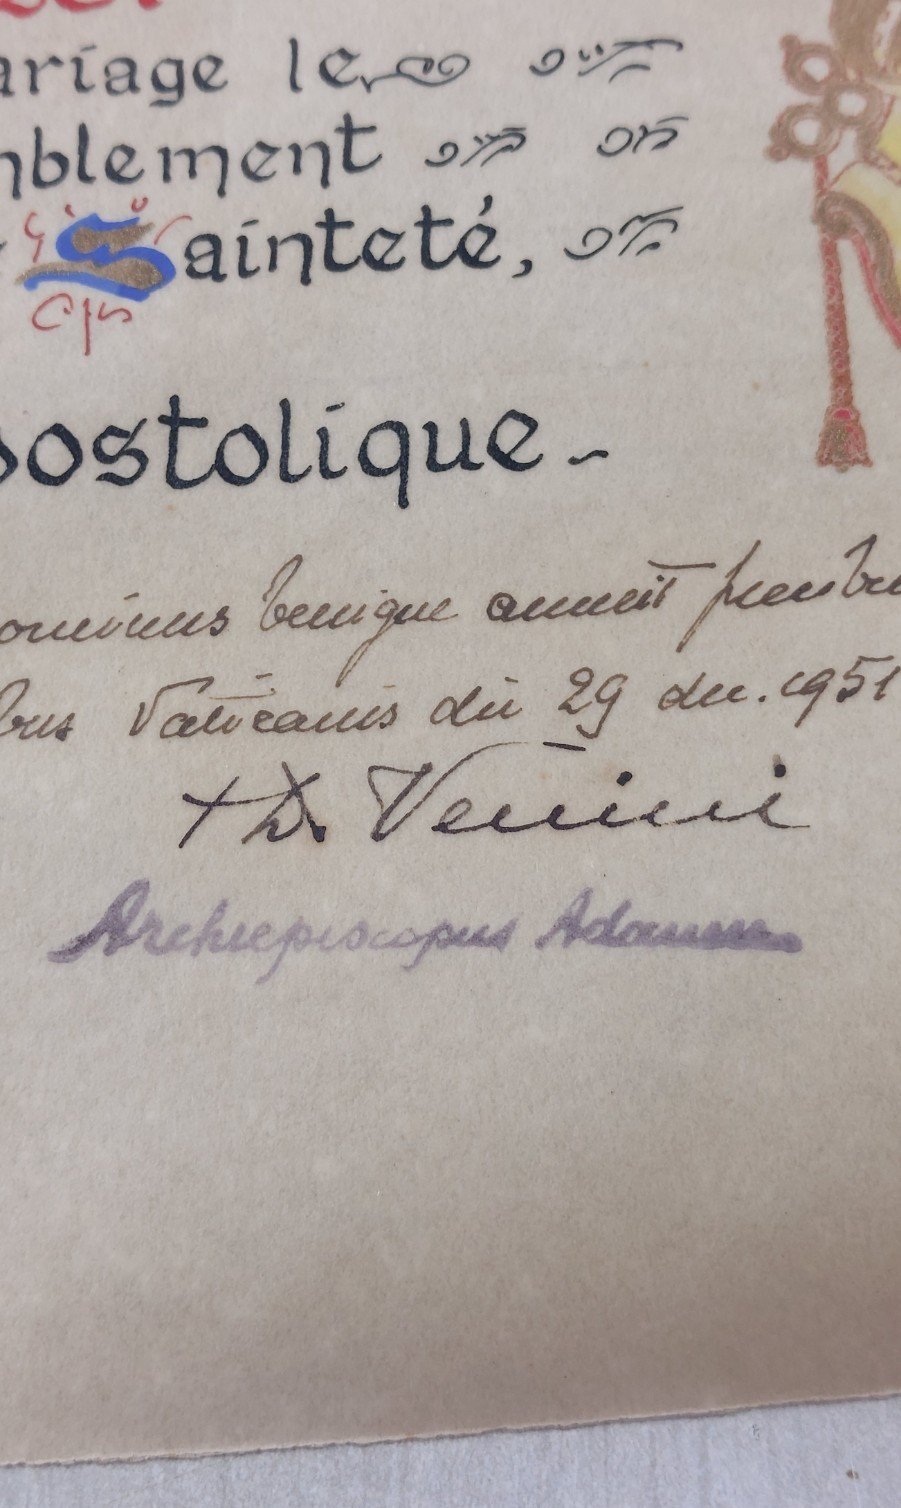 ariage le
nblement
Sainteté,
ostolique -
ominus benigne annuit precibus
bus Vaticanis die 29 dec. 1951
+ D. Venini
Archiepiscopus Adanen.